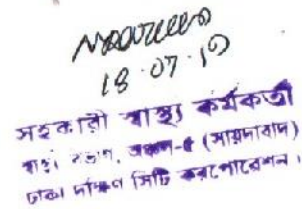 18.07.19
সহকারী স্বাস্থ্য কর্মকর্তা
স্বাস্থ্য বিভাগ, অঞ্চল-৫ (সায়দাবাদ)
ঢাকা দক্ষিণ সিটি করপোরেশন।